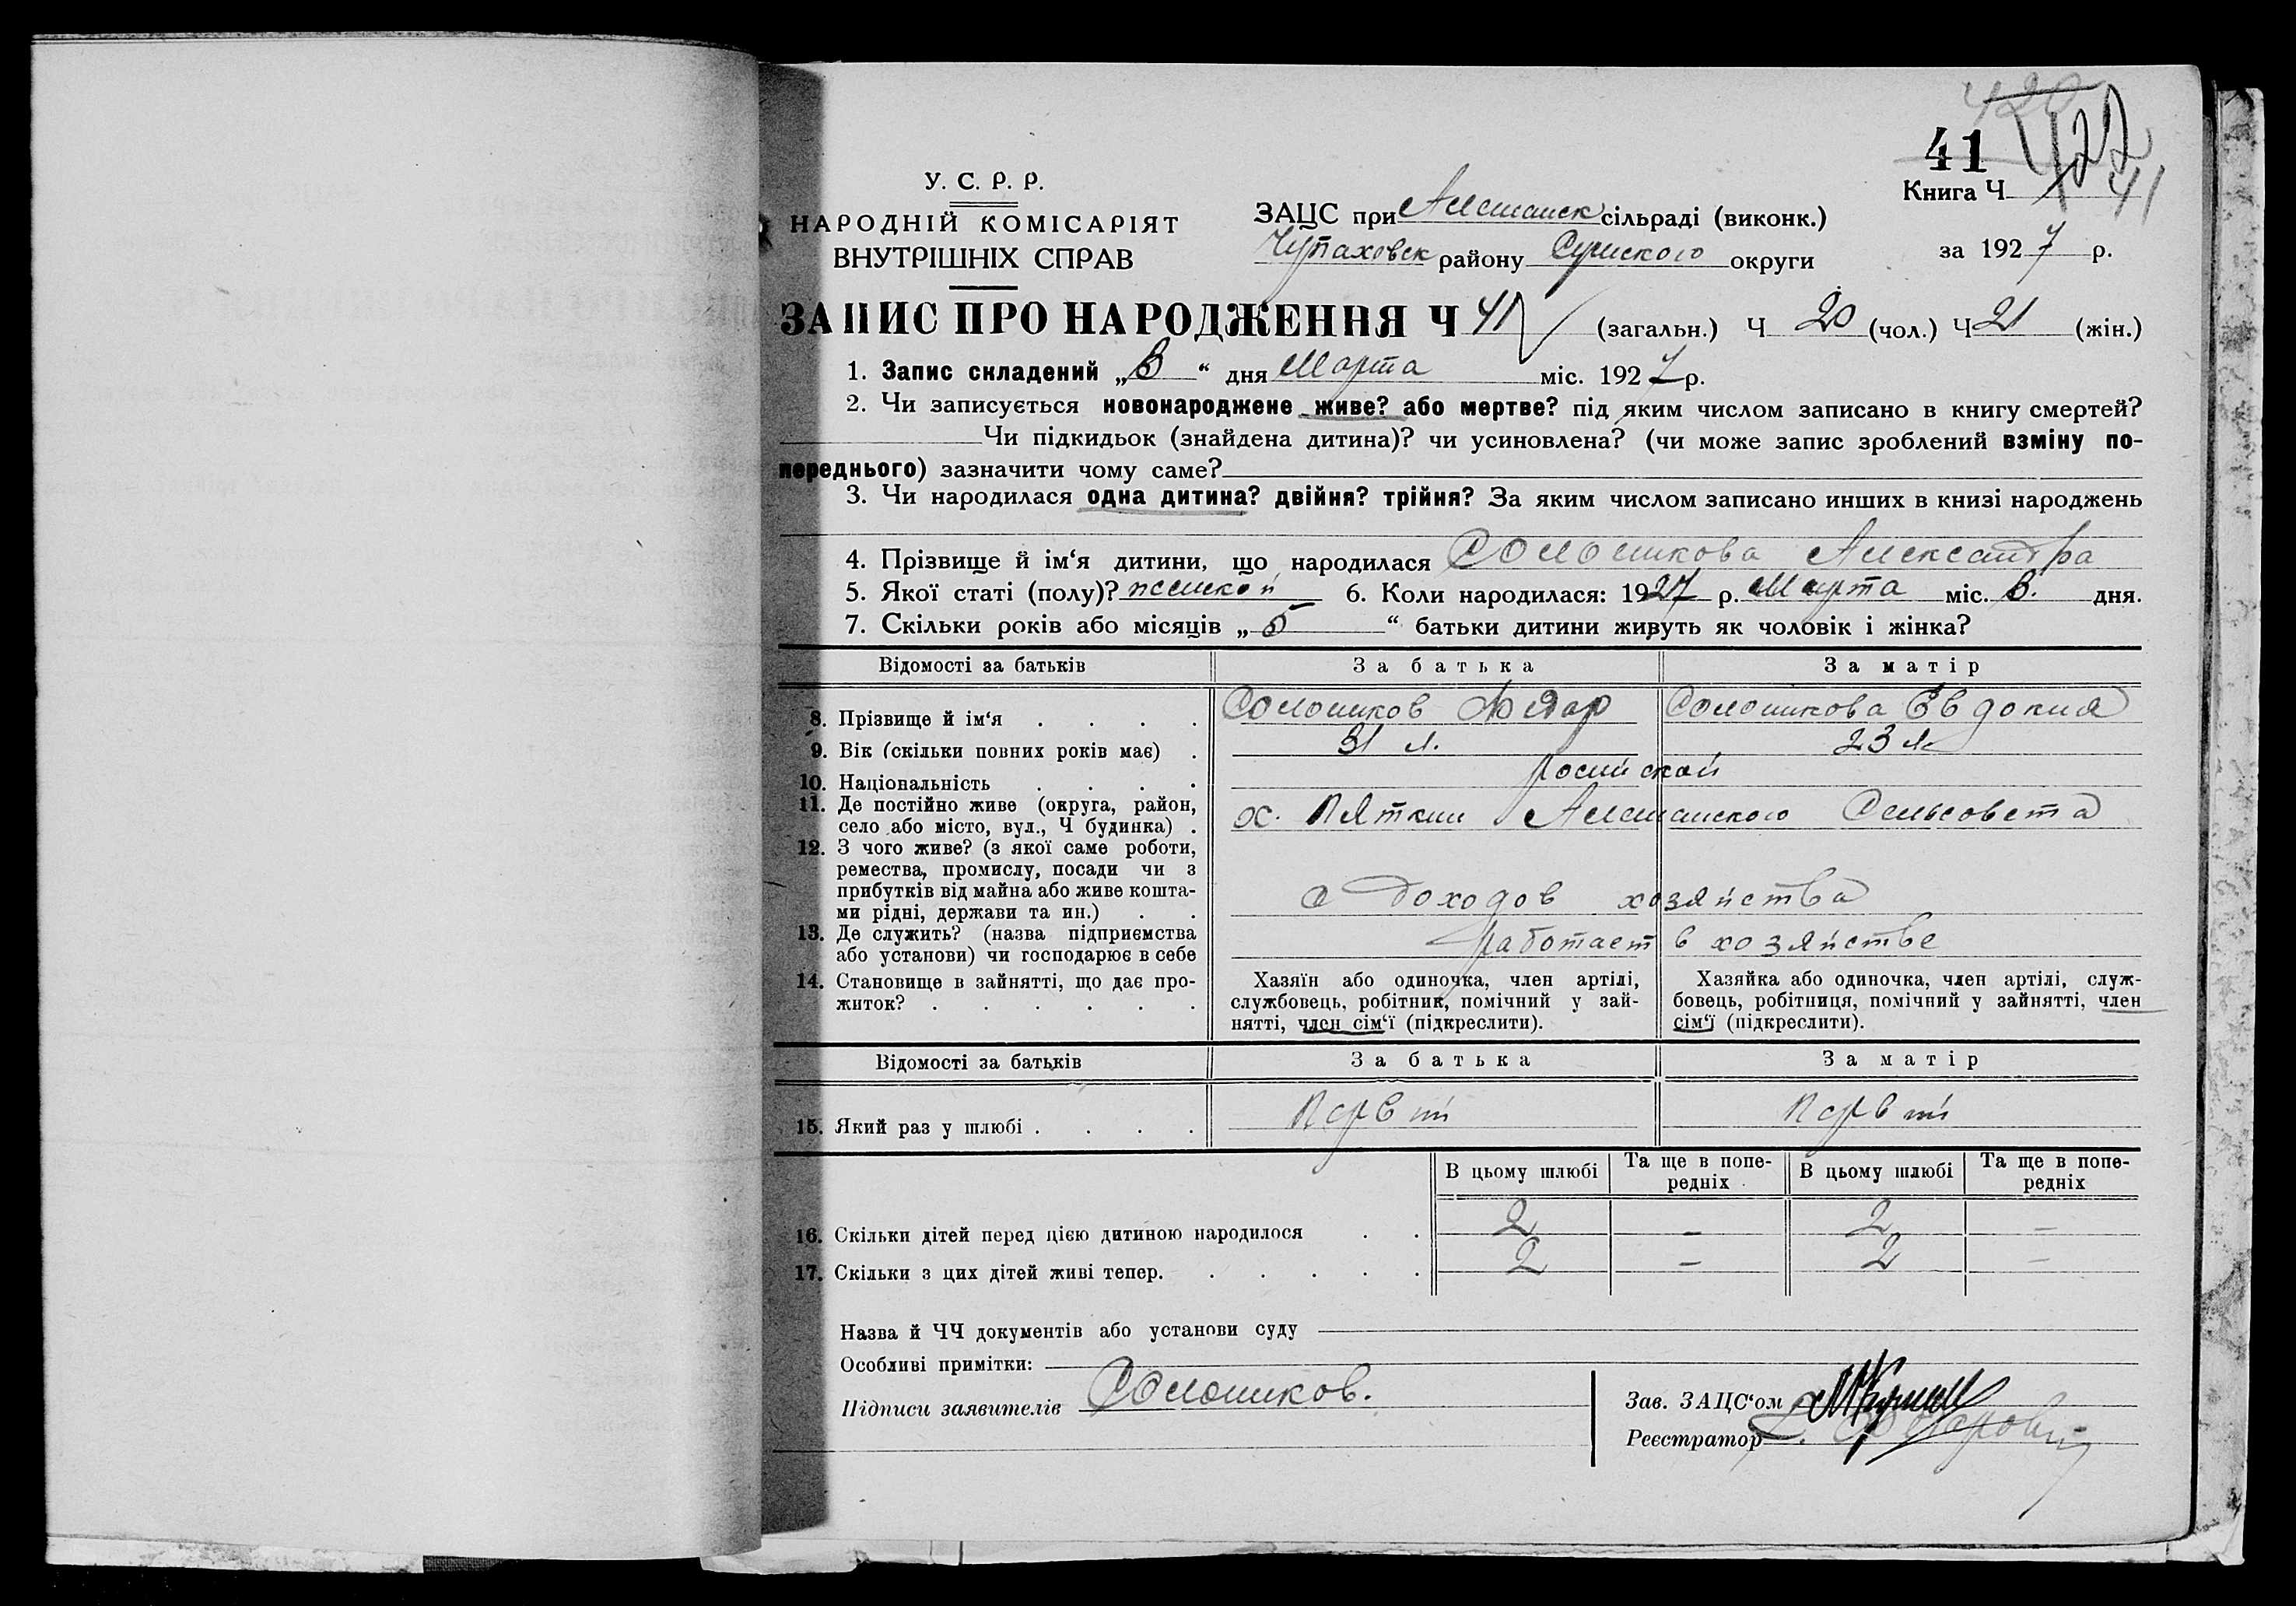 41 427
Книга Ч 41
У. С. Р. Р.
НАРОДНІЙ КОМІСАРІЯТ
ВНУТРІШНІХ СПРАВ
ЗАЦС при сільраді (виконк.)
Чупаховск району Сумского округи
за 1927 р.
ЗАПИС ПРО НАРОДЖЕННЯ Ч 41 (загальн.) Ч 20 (чол.) Ч 21 (жін.)
1. Запис складений „8“ дня Марта міс. 1927 р.
2. Чи записується новонароджене живе? або мертве? під яким числом записано в книгу смертей?
Чи підкидьок (знайдена дитина)? чи усиновлена? (чи може запис зроблений взміну по-
переднього) зазначити чому саме?
3. Чи народилася одна дитина? двійня? трійня? За яким числом записано инших в книзі народжень
4. Прізвище й ім‘я дитини, що народилася Солошикова Александра
5. Якої статі (полу)? женской 6. Коли народилася: 1927 р. Марта міс. 8. дня.
7. Скільки років або місяців „5“ батьки дитини живуть як чоловік і жінка?
Відомості за батьків За батька За матір
8. Прізвище й ім‘я . . . . Солошиков Солошикова Евдокия
9. Вік (скільки повних років має) . 31 л. 23 л.
10. Національність . . . . Росийской
11. Де постійно живе (округа, район, село або місто, вул., Ч будинка) . х. Пяткин Сельсовета
12. З чого живе? (з якої саме роботи,
ремества, промислу, посади чи з
прибутків від майна або живе кошта-
ми рідні, держави та ин.) . . с доходов хозяйства
13. Де служить? (назва підприємства
або установи) чи господарює в себе работает в хозяйстве
14. Становище в зайнятті, що дає про-
житок? . . . . . .
Хазяїн або одиночка, член артілі,
службовець, робітник, помічний у зай-
нятті, член сім‘ї (підкреслити).
Хазяйка або одиночка, член артілі, служ-
бовець, робітниця, помічний у зайнятті, член
сім‘ї (підкреслити).
Відомості за батьків За батька За матір
15. Який раз у шлюбі . . . . Первый Первый
В цьому шлюбі Та ще в попе-редніх В цьому шлюбі Та ще в попе-редніх
16. Скільки дітей перед цією дитиною народилося . . 2 – 2 –
17. Скільки з цих дітей живі тепер. . . . . . 2 – 2 –
Назва й ЧЧ документів або установи суду
Особливі примітки:
Підписи заявителів Солошиков.
Зав. ЗАЦС‘ом
Реєстратор